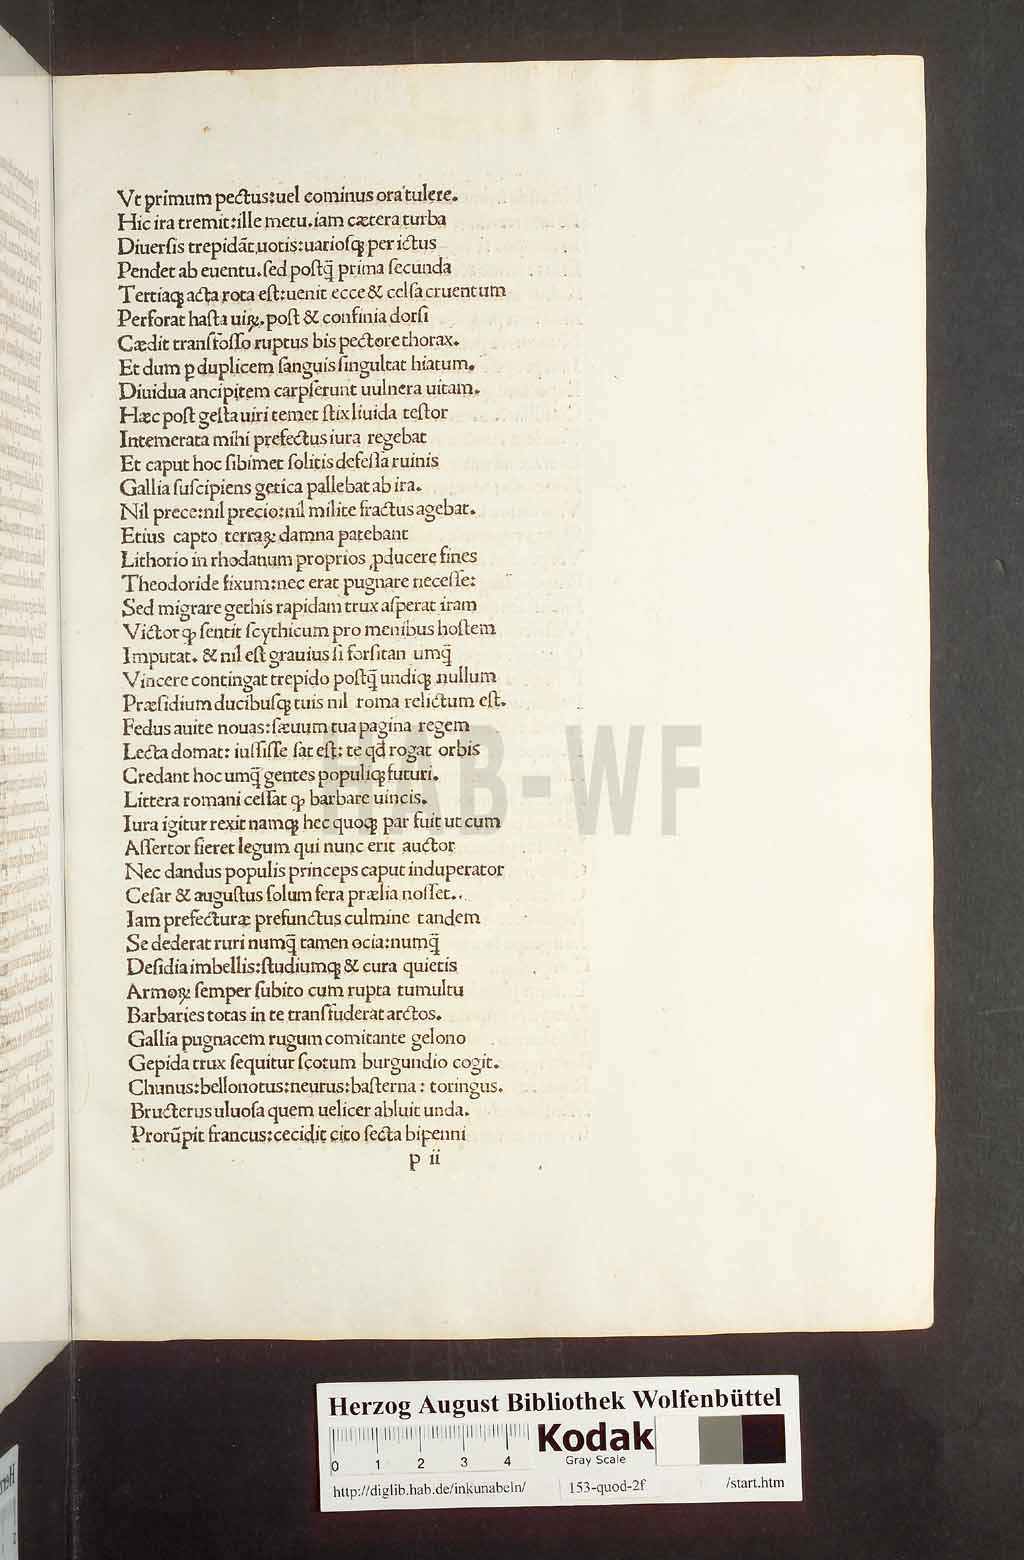 Vt primum pectus:uel cominus ora tulere.
Hic ira tremit:ille metu.iam cætera turba
Diuersis trepidãt uotis:uariosq; per ictus
Pendet ab euentu.sed postq̃ prima secunda
Tertiaq; acta rota est:uenit ecce & celsa cruentum
Perforat hasta uiꝝ.post & confinia dorsi
Cædit transfosso ruptus bis pectore thorax.
Et dum ꝑ duplicem sanguis singultat hiatum.
Diuidua ancipitem carpserunt uulnera uitam.
Hæc post gesta uiri temet stix liuida testor
Intemerata mihi prefectus iura regebat
Et caput hoc sibimet solitis defessa ruinis
Gallia suscipiens getica pallebat ab ira.
Nil prece:nil precio:nil milite fractus agebat.
Etius capto terraꝝ damna patebant
Lithorio in rhodanum proprios ꝓducere fines
Theodoride fixum:nec erat pugnare necesse:
Sed migrare gethis rapidam trux asperat iram
Victor ꝙ sentit scythicum pro menibus hostem
Imputat. & nil est grauius si forsitan umq̃
Vincere contingat trepido postq̃ undiq; nullum
Præsidium ducibusq; tuis nil roma relictum est.
Fedus auite nouas:sæuum tua pagina regem
Lecta domat: iussisse sat est: te qd rogat orbis
Credant hoc umq̃ gentes populiq; futuri.
Littera romani cessat ꝙ barbare uincis.
Iura igitur rexit namq; hec quoq; par fuit ut cum
Assertor fieret legum qui nunc erit auctor
Nec dandus populis princeps caput induperator
Cesar & augustus solum fera prælia nosset..
Iam prefecturæ prefunctus culmine tandem
Se dederat ruri numq̃ tamen ocia:numq̃
Desidia imbellis:studiumq; & cura quietis
Armoꝝ semper subito cum rupta tumultu
Barbaries totas in te transfuderat arctos.
Gallia pugnacem rugum comitante gelono
Gepida trux sequitur scotum burgundio cogit.
Chunus:bellonotus:neurus:basterna: toringus.
Bructerus uluosa quem uelicer abluit unda.
Prorũpit francus:cecidit cito secta bipenni
p ii
HAB-WF
Herzog August Bibliothek Wolfenbüttel
0 1 2 3 4
Kodak
Gray Scale
http://diglib.hab.de/inkunabeln/ 153-quod-2f /start.htm